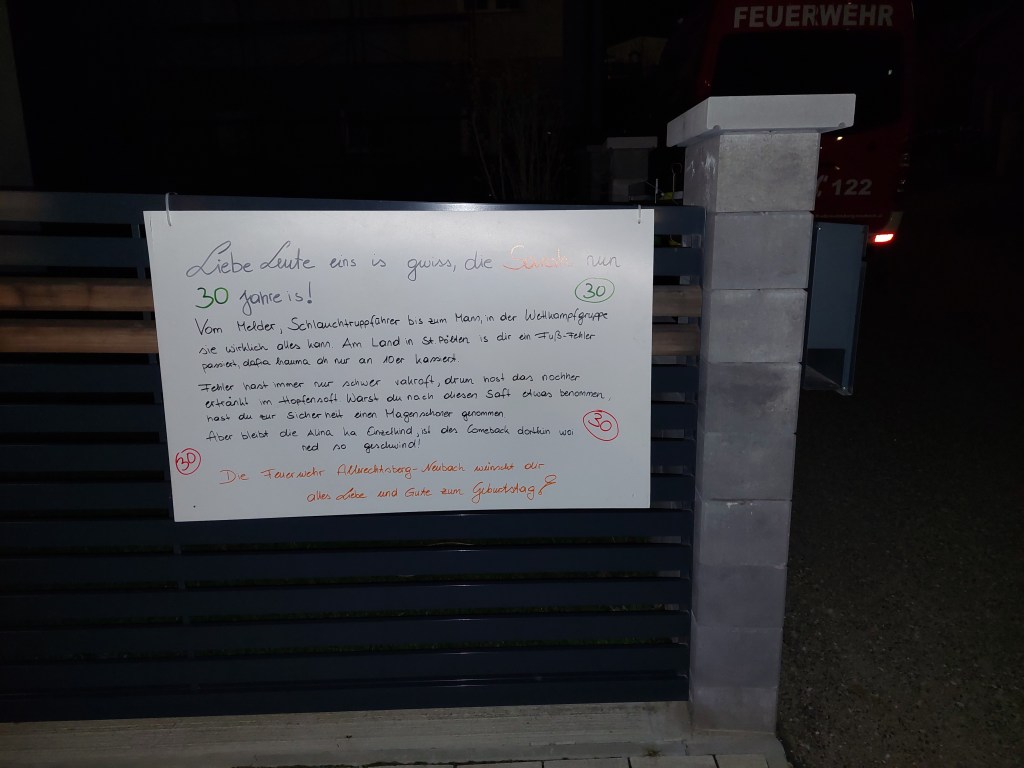 FEUERWEHR
122
Liebe Leute eins is gwiss, die nun
30 Jahre is!
30
Vom Melder, Schlauchtruppführer bis zum Mann, in der Wettkampfgruppe
sie wirklich alles kann. Am Land in St. Pölten is dir ein Fuß-Fehler
passiert, dafia hauma oh nur an 10er kassiert.
Fehler hast immer nur schwer vakroft, drum host das nochher
ertränkt im Hopfensoft Warst du noch diesen Saft etwas benommen,
hast du zur Sicherheit einen Magenschoner genommen
Aber bleibt die Alina ka Einzelkind, ist des Comeback dorthin woi
ned so geschwind!
30
30
Die Feuerwehr Allbrechtsberg-Neubach wünscht dir
alles Liebe und Gute zum Geburtstag